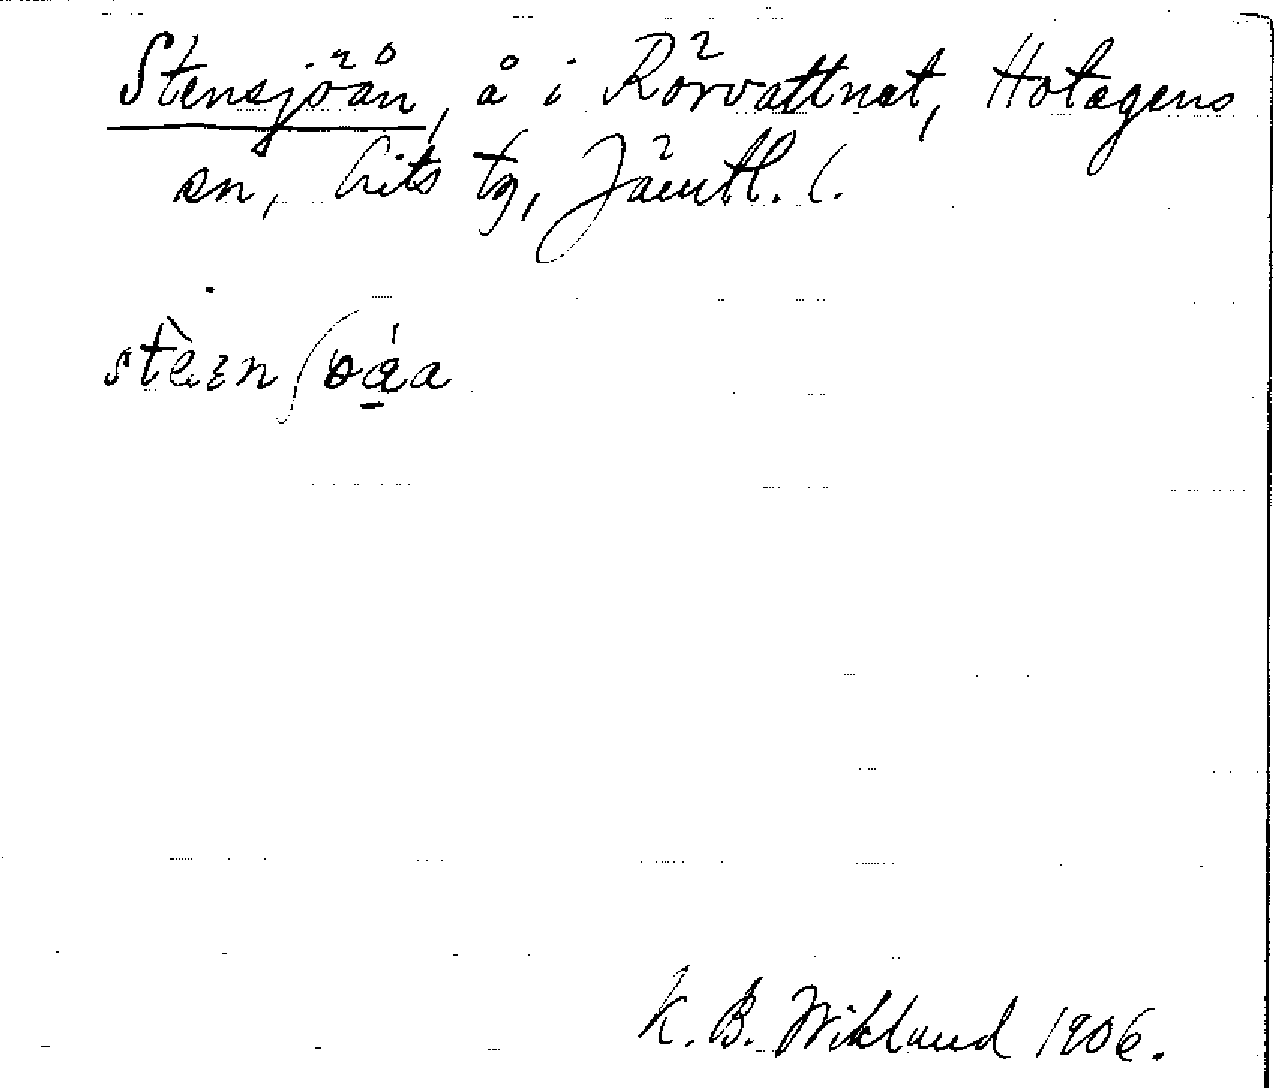 Stensjöån, å i Rörvattnet, Hotagens
sn, Lits tg, Jämtl. l.
stèɛnʃɵáa
K. B. Wiklund 1906.